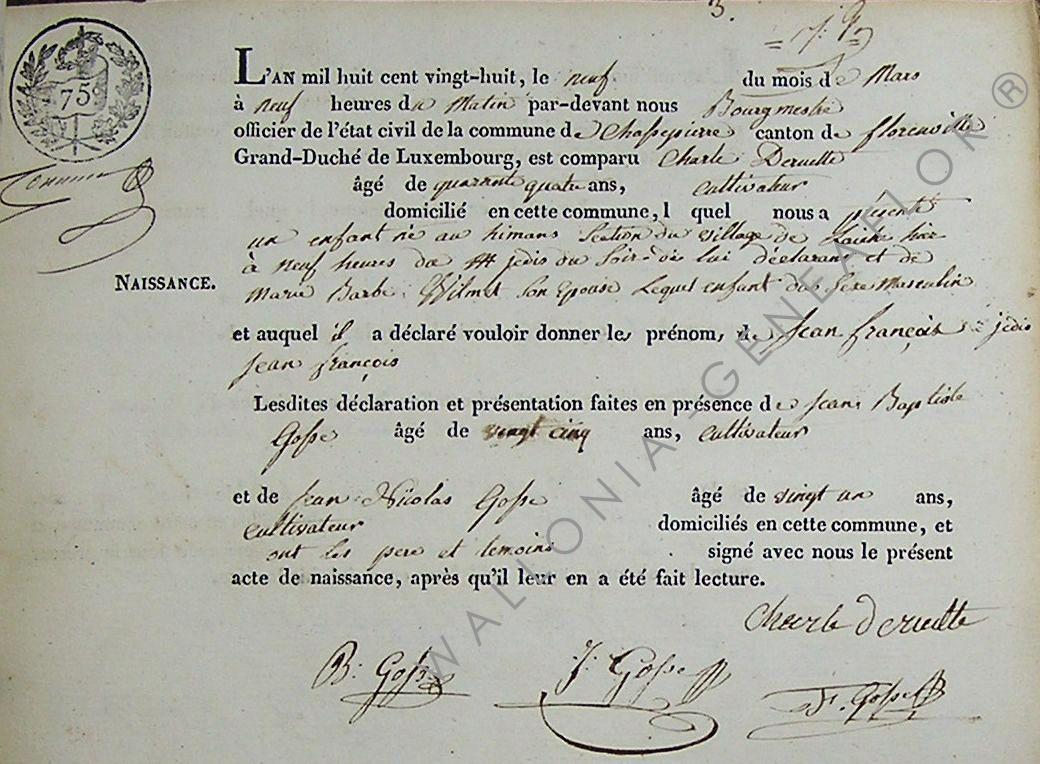 3.
75c
L'AN mil huit cent vingt-huit, le neuf du mois de Mars
à neuf heures du Matin par-devant nous Bourgmestre
officier de l'état civil de la commune de Chassepierre canton de florenville
Grand-Duché de Luxembourg, est comparu Charle Deruette
âgé de quarante quatre ans, cultivateur
domicilié en cette commune, l quel nous a présenté
un enfant né au himans Section du village de Sainte
à neuf heures du jedis du Soir de lui déclarant et de
Marie Barbe Wilmet Son Epouse Lequel enfant du Sexe Masculin
NAISSANCE.
et auquel il a déclaré vouloir donner les prénoms de Jean françois = jedis
Jean françois
Lesdites déclaration et présentation faites en présence de Jean Baptiste
Gosse âgé de vingt cinq ans, cultivateur
et de Jean Nicolas Gosse âgé de vingt un ans,
cultivateur domiciliés en cette commune, et
ont les pere et temoins signé avec nous le présent
acte de naissance, après qu'il leur en a été fait lecture.
Charle Deruette
B: Gosse J: Gosse F. Gosse
WALLONIA GENEAFLOR ®